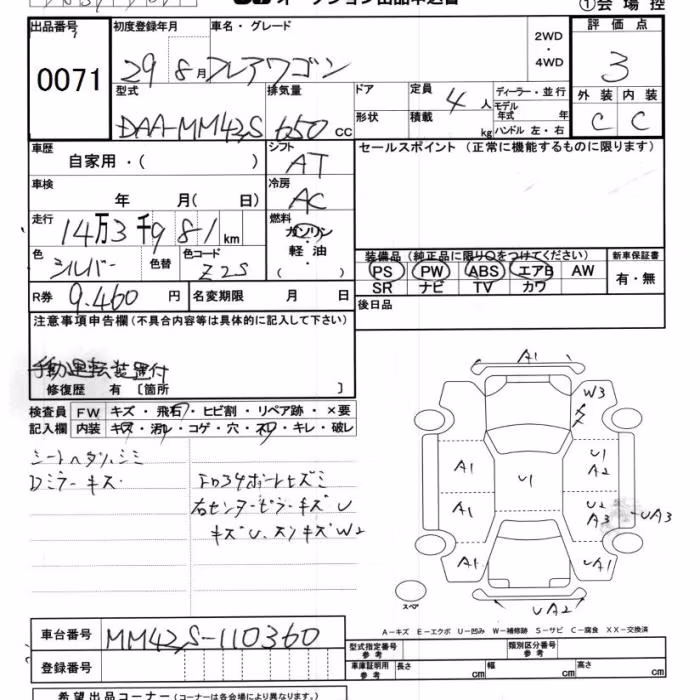 オークション出品申込書
①会場控
出品番号 初度登録年月 車名・グレード 2WD・4WD 評価点
0071 29 8月 フレアワゴン 3
型式 排気量 ドア 定員 4人 ディーラー・並行 外装 内装
DAA-MM42S 650cc 形状 積載 kg モデル年式 年 C C
ハンドル 左・右
車歴 シフト セールスポイント (正常に機能するものに限ります)
自家用・( ) AT
車検 冷房
年 月( 日) AC
走行 燃料
14万3千981km ガソリン
軽・油
( ・ )
色 色替 色コード 装備品(純正品に限り○をつけてください) 新車保証書
シルバー Z2S PS PW ABS エアB AW 有・無
SR ナビ TV カワ
R券 9.460円 名変期限 月 日 後日品
注意事項申告欄(不具合内容等は具体的に記入して下さい)
手動運転装置付
修復歴 有〔箇所 〕
検査員 FW キズ・飛石・ヒビ割・リペア跡・×要
記入欄 内装 キズ・汚レ・コゲ・穴・スレ・キレ・破レ
シートヘタリ、シミ
Dミラーキズ
フロアサポートヒズミ
右センターピラーキズU
キズU、スリキズW2
A1
W3
A1 U1 U1 A2
A1 U2 A3 UA3
A1 UA1
UA2
スペア
A-キズ E-エクボ U-凹み W-補修跡 S-サビ C-腐食 XX-交換済
車台番号 MM42S-110360
型式指定番号 参考 類別区分番号 参考
登録番号 車庫証明用 参考 長さ cm 幅 cm 高さ cm
希望出品コーナー(コーナーは各会場により異なります。)